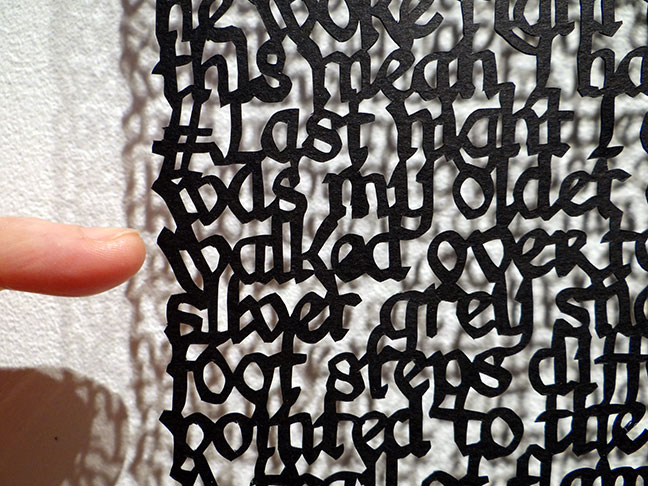 he woke right
this mean I ha
#Last night I
was my older
walked over to
silver grey
foot steps diff
pointed to the
A wall of flam